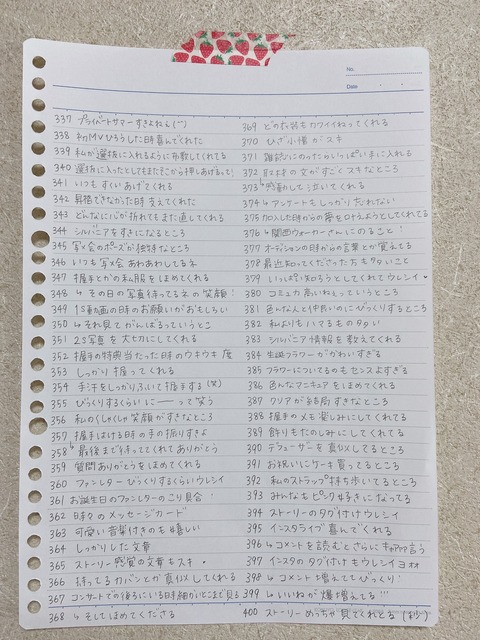 No.
Date
337 プライベートサマーすきよねぇ(^^)
338 初MVひろうした日時喜んでくれた
339 私が選抜に入れるように布教してくれてる
340 選抜に入ったとしてもまたそこから押しあげるって!
341 いつもすくいあげてくれる
342 昇格できなかった時支えてくれた
343 どんなに心が折れてもまた直してくれる
344 シルバニアをすきになるところ
345 写メ会のポーズが独特なところ
346 いつも写メ会あわあわしてるネ
347 握手とかの私服をほめてくれる
348 ↳その日の写真待ってるネの笑顔!
349 1S動画の時のお願いがおもしろい
350 ↳それ見てがんばるっていうとこ
351 2S写真を大切にしてくれる
352 握手の特典当たった日のウキウキ度
353 しっかり握ってくれる
354 手汗をしっかりふいて握手する(笑)
355 びっくりするくらいにーーって笑う
356 私のくしゃくしゃ笑顔がすきなところ
357 握手はける時の手の振りすきよ
358 ↳最後まで待っててくれてありがとう
359 質問ありがとうをほめてくれる
360 ファンレターびっくりするくらいウレシイ
361 お誕生日のファンレターのこり具合!
362 日時々のメッセージカード
363 可愛い音楽付きのも嬉しい
364 しっかりした文章
365 ストーリー感覚の文章もスキ
366 持ってるカバンとか真似してくれる
367 コンサートでの後ろにいる日時細かいとこまで見る
368 ↳そしてほめてくださる
369 どのお洋服もカワイイねってくれる
370 ひざ小僧がスキ
371 雑誌にのったらいっぱい手に入れる
372 取材の文がすごくスキなところ
373 ↳感動して泣いてくれる
374 ↳アンケートもしっかり忘れない
375 加入した時からの夢を叶えようとしてくれてる
376 ↳関西ウォーカーさんにのること!
377 オーディションの日時からの言葉とか覚えてる
378 最近知ってくださった方もタイセツ
379 いっぱい知ろうとしてくれてウレシイ♥
380 コミュ力高いねぇっていうところ
381 色んな人と仲良いのにびっくりするところ
382 私よりもハマるものタタい
383 シルバニア情報を教えてくれる
384 生誕フラワーがかわいすぎる
385 フラワーについてるのもセンスよすぎる
386 色んなマニキュアをほめてくれる
387 クリアが結局すきなところ
388 握手のメモ楽しみにしてくれてる
389 飾りもたのしみにしてくれてる
390 デフューザーを真似してるところ
391 お祝いにケーキ買ってるところ
392 私のストラップ持ち歩いてるところ
393 みんなもピンク好きになってる
394 ストーリーのタグ付けウレシイ
395 インスタライブ喜んでくれる
396 ↳コメントを読むとさらにキャァァァ言う
397 インスタのタグ付けもウレシイヨ
398 ↳コメント増えててびっくり!
399 ↳いいねが爆増えてる!!!
400 ストーリーめっちゃ見てくれとる(1秒)